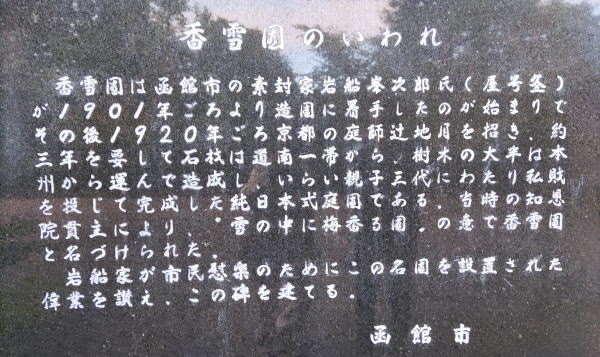 香雪園のいわれ
香雪園は函館市の素封家岩船峯次郎氏(屋号
が1901年ごろより造園に着手したのが始まりで
その後1920年ごろ京都の庭師辻地月を招き、約
三年を要して石材は道南一帯から樹木の大半は本
州から運んし造成し、いらい親子三代にわたり私財
を投じて完成した。純日本式庭園である。当時知恩
院貫主により雪の中梅香る園の意で香雪園
と名づけられた。
岩船家が市民慰楽のためにこの名園を設置された
偉業を讃え、この碑を建てる。
函館市